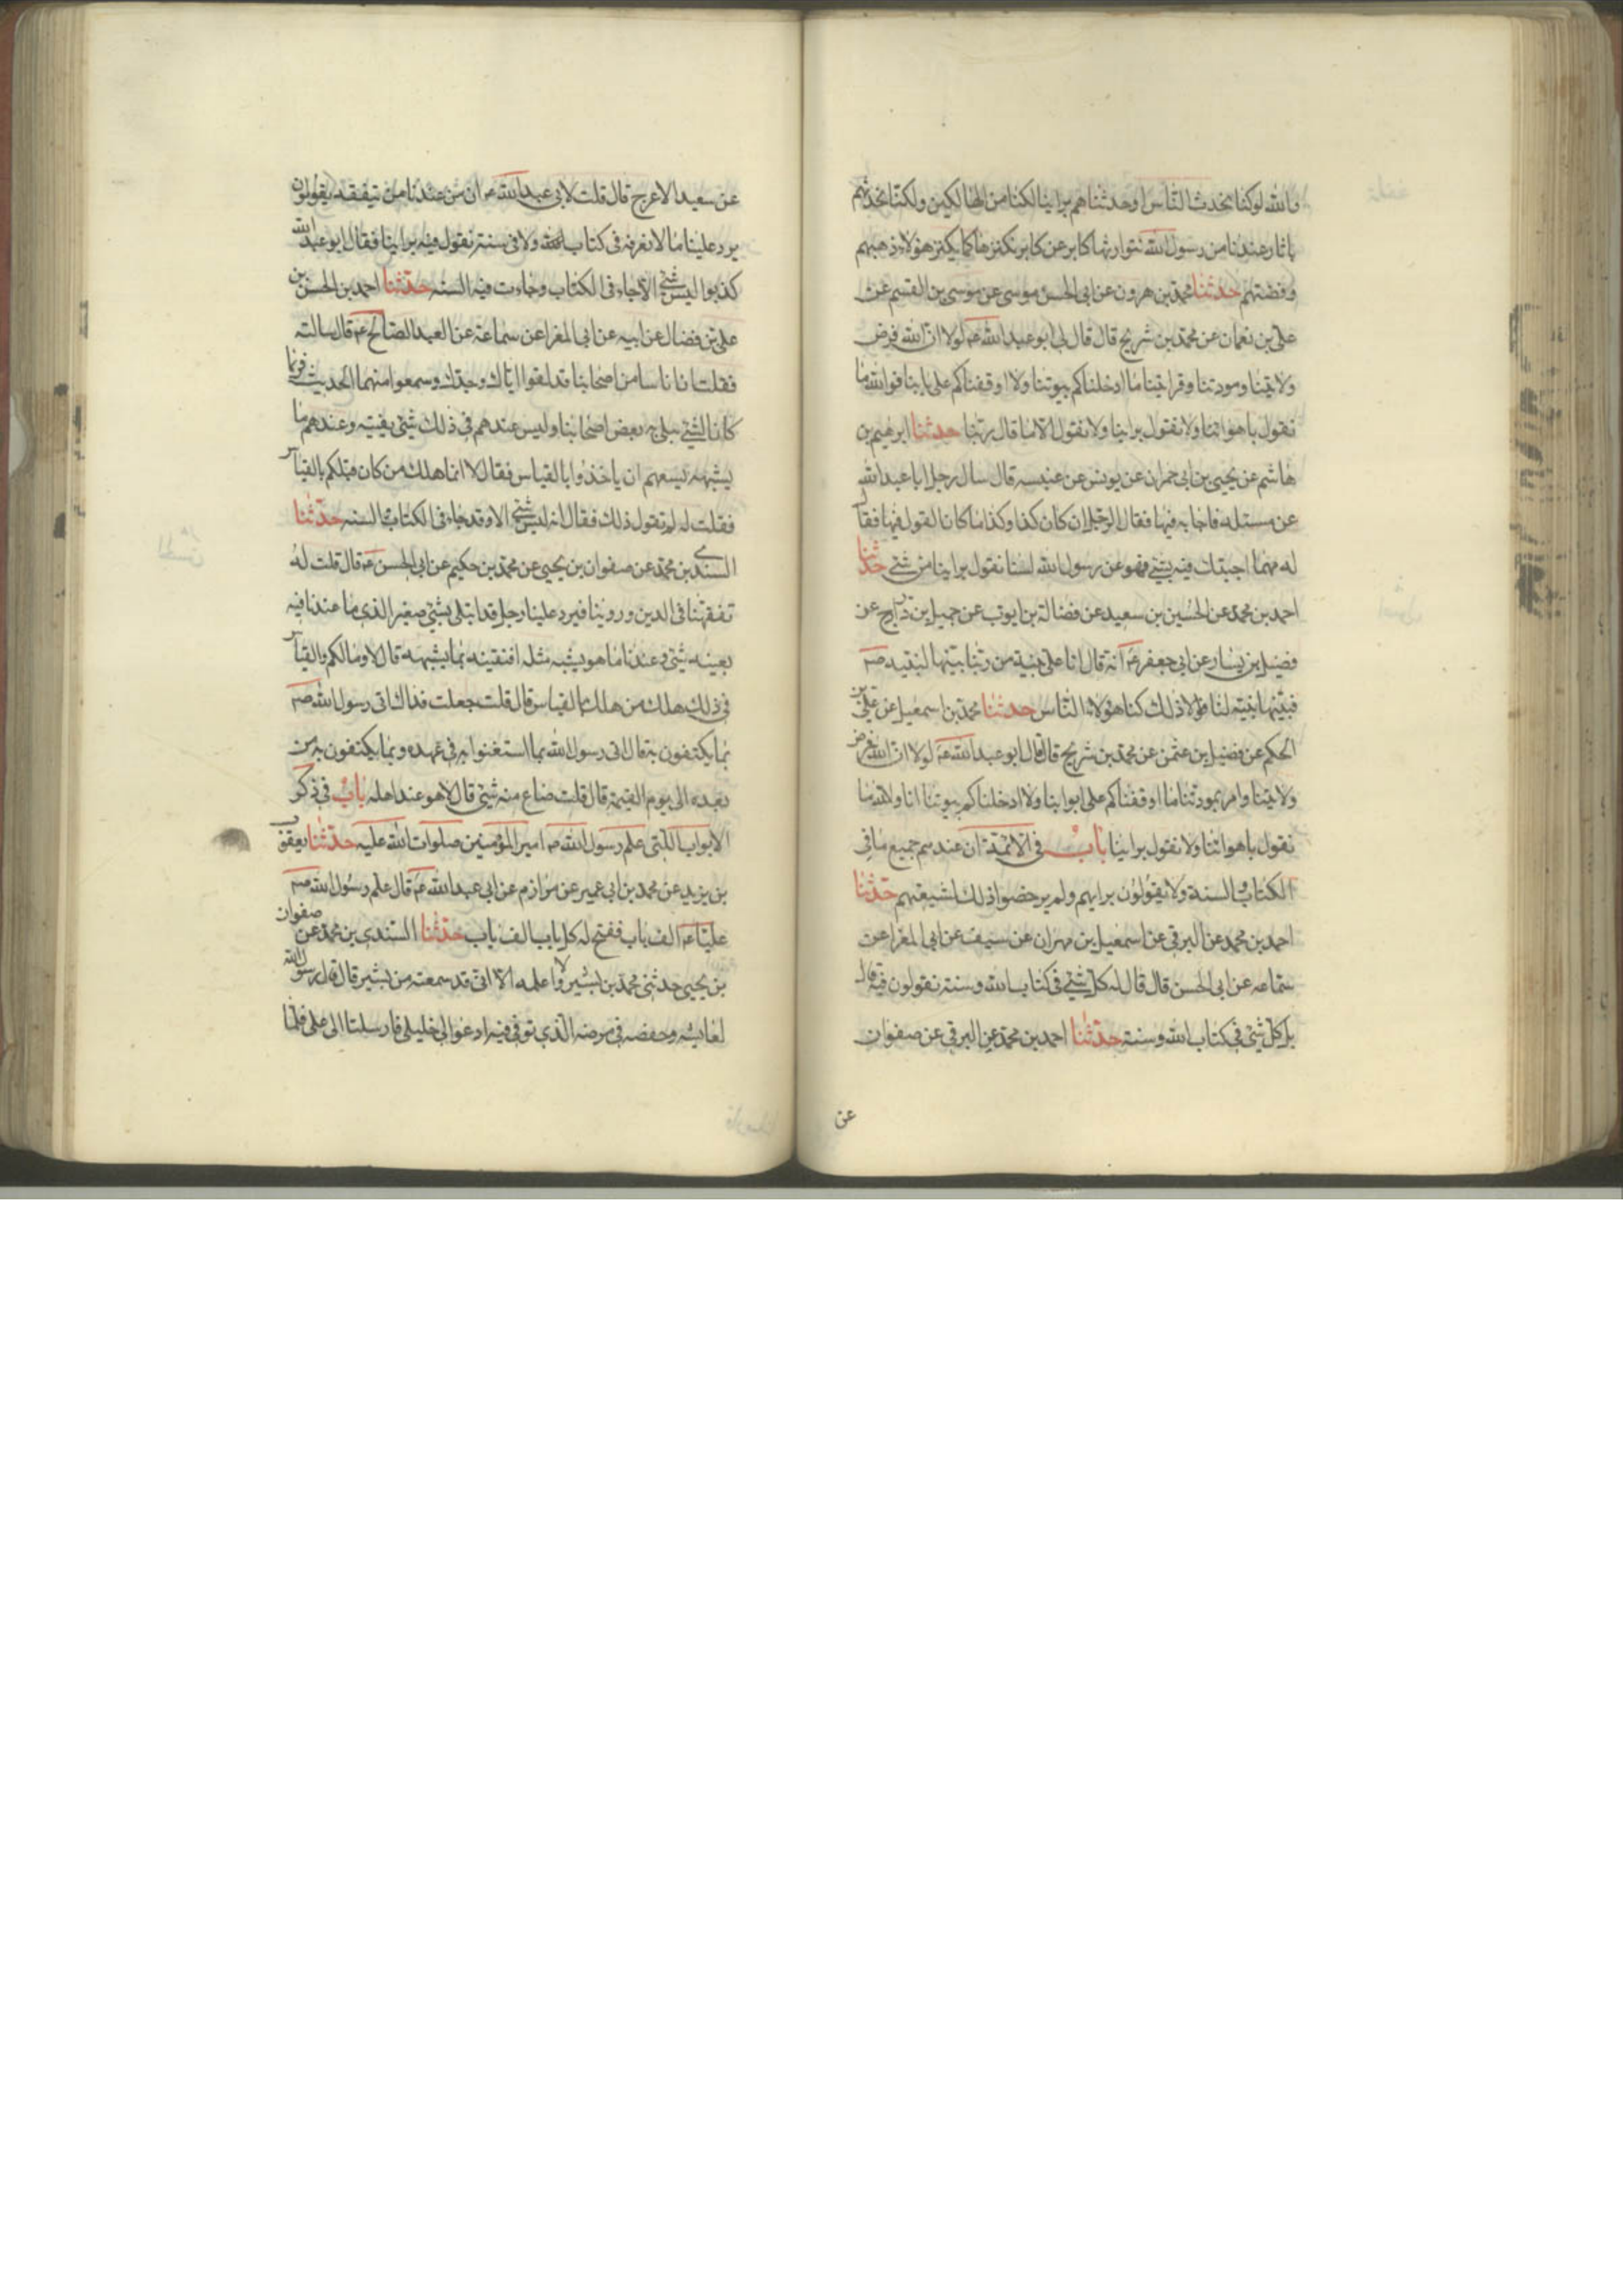 والله لو كنا نحدث الناس او حدثناهم براينا لكنا من الهالكين ولكنا نحدثهم
باثار عندنا من رسول الله نتوارثها كابر عن كابر نكنزها كما يكنز هؤلاء ذهبهم
وفضتهم حدثنا محمد بن هرون عن ابى الحسن موسى عن موسى بن القسم عن
على بن نعمان عن محمد بن شريح قال قال لى ابو عبدالله عم لولا ان الله فرض
ولايتنا ومودتنا وقرابتنا ما ادخلناكم بيوتنا ولا اوقفناكم على بابنا فوالله ما
نقول باهوائنا ولا نقول براينا ولا نقول الا ما قال ربنا حدثنا ابرهيم بن
هاشم عن يحيى بن ابى عمران عن يونس عن عنبسه قال سال رجل ابا عبدالله
عن مسئله فاجابه فيها فقال الرجل ان كان كذا وكذا ما كانا لقول فيها فقال
له مهما اجبتك فيه بشئ فهو عن رسول الله لسنا نقول براينا من شئ حدثنا
احمد بن محمد عن الحسين بن سعيد عن فضالة بن ايوب عن جميل بن دراج عن
فضيل بن يسار عن ابى جعفر عم انه قال انا على بينة من ربنا بينها لنبيه صم
فبينها نبيه لنا فلولا ذلك كنا كهؤلاء الناس حدثنا محمد بن اسمعيل عن على بن
الحكم عن فضيل بن عثمن عن محمد بن شريح قال قال ابو عبدالله عم لولا ان الله فرض
ولايتنا وامر بمودتنا ما اوقفناكم على ابوابنا ولا ادخلناكم بيوتنا انا والله ما
نقول باهوائنا ولا نقول براينا باب فى الائمة ان عندهم جميع ما فى
الكتاب والسنة ولا يقولون برايهم ولم يرخصوا ذلك لشيعتهم حدثنا
احمد بن محمد عن البرقى عن اسمعيل بن مهران عن سيف عن ابى المغرا عن
سماعه عن ابى الحسن قال قال له كل شئ فى كتاب الله وسنته نقولون فيه قال
بل كل شئ فى كتاب الله وسنته حدثنا احمد بن محمد عن البرقى عن صفوان
عن
عن سعيد الاعرج قال قلت لابى عبدالله عم ان من عندنا من يتفقه يقولون
يرد علينا ما لا نعرفه فى كتاب الله ولا فى سنته نقول فيه براينا فقال ابو عبدالله
كذبوا ليس شئ الا جاء فى الكتاب وجاءت فيه السنه حدثنا احمد بن الحسن بن
على بن فضال عن ابيه عن ابى المغرا عن سماعة عن العبد الصالح عم قال سالته
فقلت ان اناسا من اصحابنا قد لقوا اباك وجدك وسمعوا منهما الحديث فربما
كانا لشئ يبتلى به بعض اصحابنا وليس عندهم فى ذلك شئ يفتيه وعندهم ما
يشبهه يسعهم ان ياخذوا بالقياس فقال لا انما هلك من كان قبلكم بالقياس
فقلت له لم تقول ذلك فقال انه ليس شئ الا وقد جاء فى الكتاب والسنه حدثنا
السندى بن محمد عن صفوان بن يحيى عن محمد بن حكيم عن ابى الحسن عم قال قلت له
تفقهنا فى الدين وروينا فيرد علينا رجل قد ابتلى بشئ صغير الذى ما عندنا فيه
بعينه شئ وعندنا ما هو يشبه مثله افنفتيه بما يشبهه قال لا وما لكم والقياس
فى ذلك هلك من هلك بالقياس قال قلت جعلت فداك اتى رسول الله صم
بما يكتفون به قال اتى رسول الله بما استغنوا به فى عهده وبما يكتفون به من
بعده الى يوم القيمة قال قلت ضاع منه شئ قال لا هو عند اهله باب فى ذكر
الابواب اللتى علم رسول الله صم امير المؤمنين صلوات الله عليه حدثنا يعقوب
بن يزيد عن محمد بن ابى عمير عن مرازم عن ابى عبدالله عم قال علم رسول الله صم
عليا عم الف باب ففتح له كل باب الف باب حدثنا السندى بن محمد عن صفوان
بن يحيى حدثنى محمد بن بشير ولا اعلمه الا انى قد سمعته من بشير قال قال رسول الله
لعايشه وحفصه فى مرضه الذى توفى فيه ادعوا لى خليلى فارسلتا الى على فلما